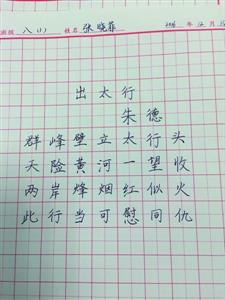 班级 八(1) 姓名 张晓菲 年 12 月
出太行
朱德
群峰壁立太行头
天险黄河一望收
两岸烽烟红似火
此行当可慰同仇